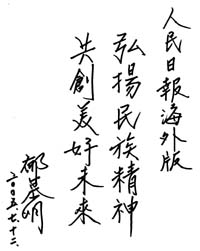 人民日報海外版
弘揚民族精神
共創美好未來
郁慕明
二〇〇五.七.十二.